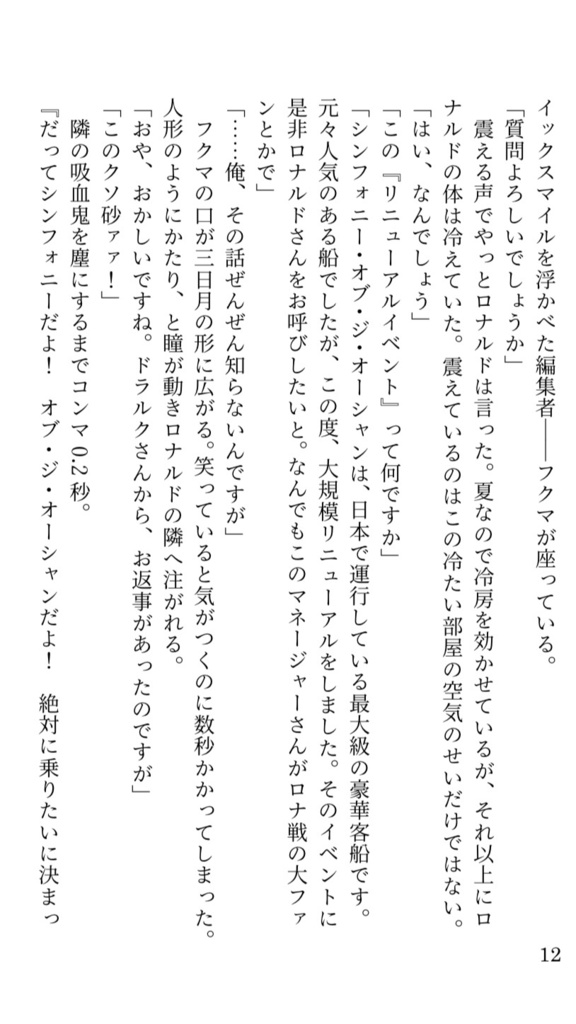 イックスマイルを浮かべた編集者――フクマが座っている。
「質問よろしいでしょうか」
　震える声でやっとロナルドは言った。夏なので冷房を効かせているが、それ以上にロ
ナルドの体は冷えていた。震えているのはこの冷たい部屋の空気のせいだけではない。
「はい、なんでしょう」
「この『リニューアルイベント』って何ですか」
「シンフォニー・オブ・ジ・オーシャンは、日本で運行している最大級の豪華客船です。
元々人気のある船でしたが、この度、大規模リニューアルをしました。そのイベントに
是非ロナルドさんをお呼びしたいと。なんでもこのマネージャーさんがロナ戦の大ファ
ンとかで」
「……俺、その話ぜんぜん知らないんですが」
　フクマの口が三日月の形に広がる。笑っていると気がつくのに数秒かかってしまった。
人形のようにかたり、と瞳が動きロナルドの隣へ注がれる。
「おや、おかしいですね。ドラルクさんから、お返事があったのですが」
「このクソ砂ァァ！」
　隣の吸血鬼を塵にするまでコンマ0.2秒。
『だってシンフォニーだよ！　オブ・ジ・オーシャンだよ！　絶対に乗りたいに決まっ
12